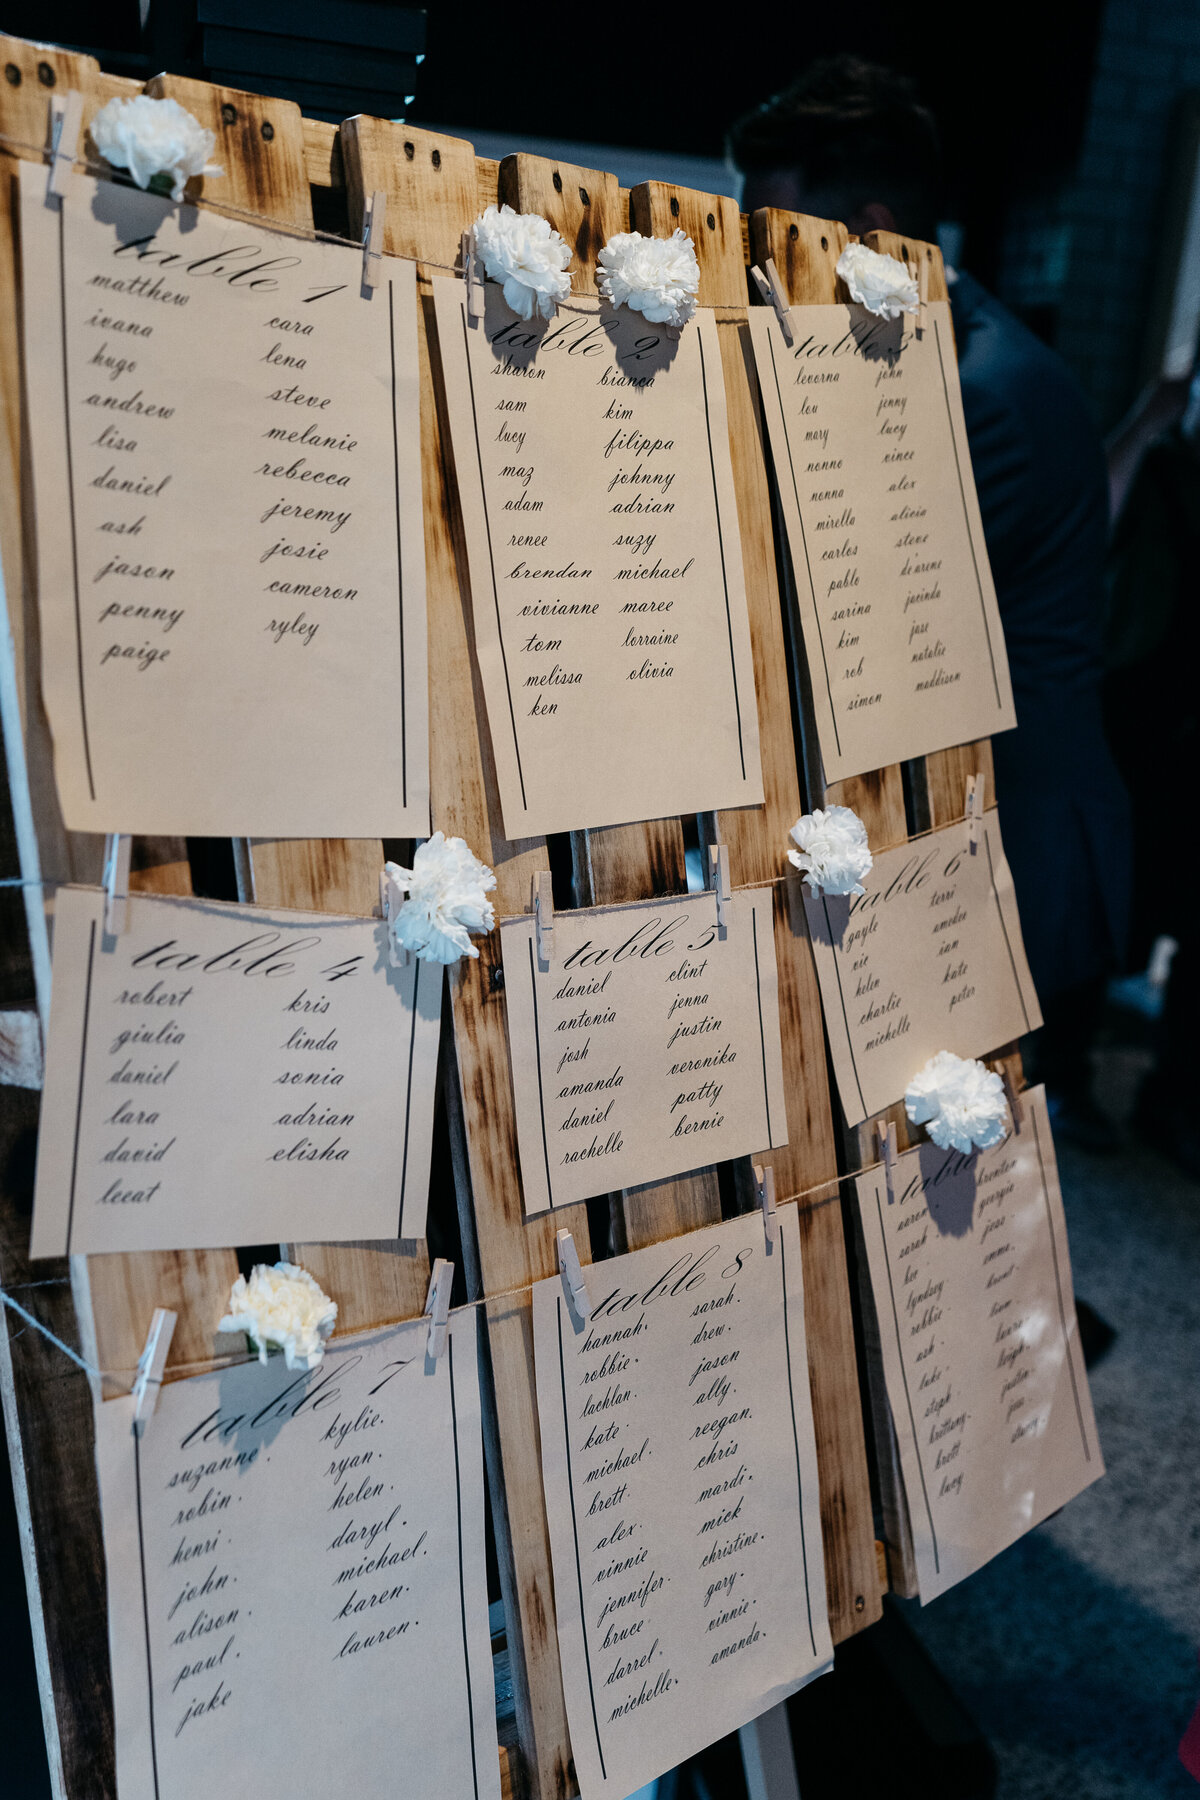 table 1
matthew
ivana
hugo
andrew
lisa
daniel
ash
jason
penny
paige
cara
lena
steve
melanie
rebecca
jeremy
josie
cameron
ryley
table 2
sharon
sam
lucy
maz
adam
renee
brendan
vivianne
tom
melissa
ken
bianca
kim
filippa
johnny
adrian
suzy
michael
maree
lorraine
olivia
table 3
levorna
lou
mary
nonno
nonna
mirella
carlos
pablo
sarina
kim
rob
simon
john
jenny
lucy
vince
alex
alicia
steve
de'arene
jacinda
jase
natalie
maddison
table 4
robert
giulia
daniel
lara
david
leeat
kris
linda
sonia
adrian
elisha
table 5
daniel
antonia
josh
amanda
daniel
rachelle
clint
jenna
justin
veronika
patty
bernie
table 6
gayle
vic
helen
charlie
michelle
terri
amedeo
ian
kate
peter
table 7
suzanne.
robin.
henri.
john.
alison.
paul.
jake
kylie.
ryan.
helen.
daryl.
michael.
karen.
lauren.
table 8
hannah.
robbie.
lachlan.
kate.
michael.
brett.
alex.
vinnie
jennifer.
bruce
darrel.
michelle.
sarah.
drew.
jason
ally.
reegan.
chris
mardi.
mick
christine.
gary.
vinnie.
amanda.
table
aaron.
sarah.
lyndsey.
robbie.
ash.
luke.
steph.
brittany.
brett.
lucy
brenton
georgie
jess.
emma.
liam.
leigh.
justin.